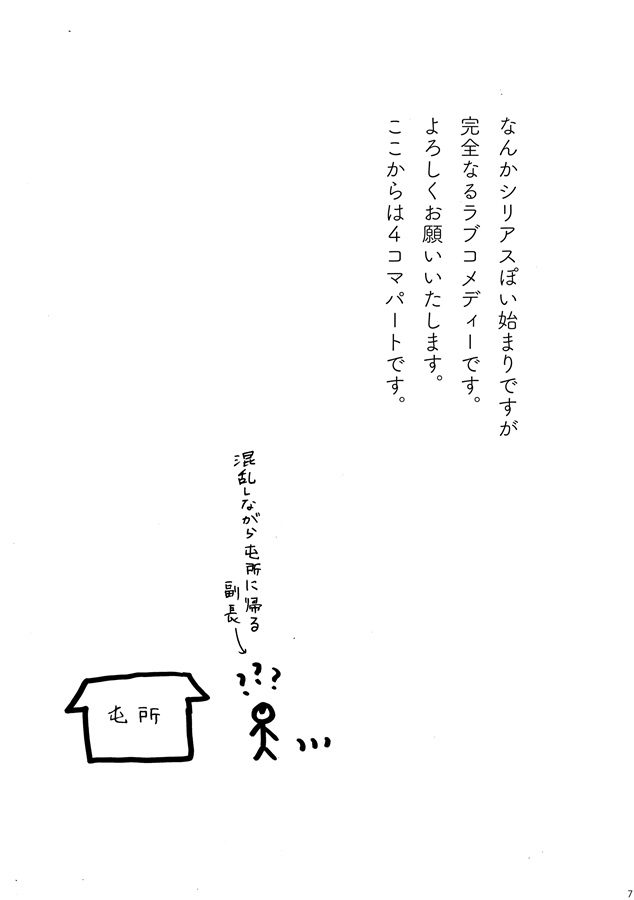 なんかシリアスぽい始まりですが
完全なるラブコメディーです。
よろしくお願いいたします。
ここからは4コマパートです。
混乱しながら屯所に帰る
副長
???
屯所
7